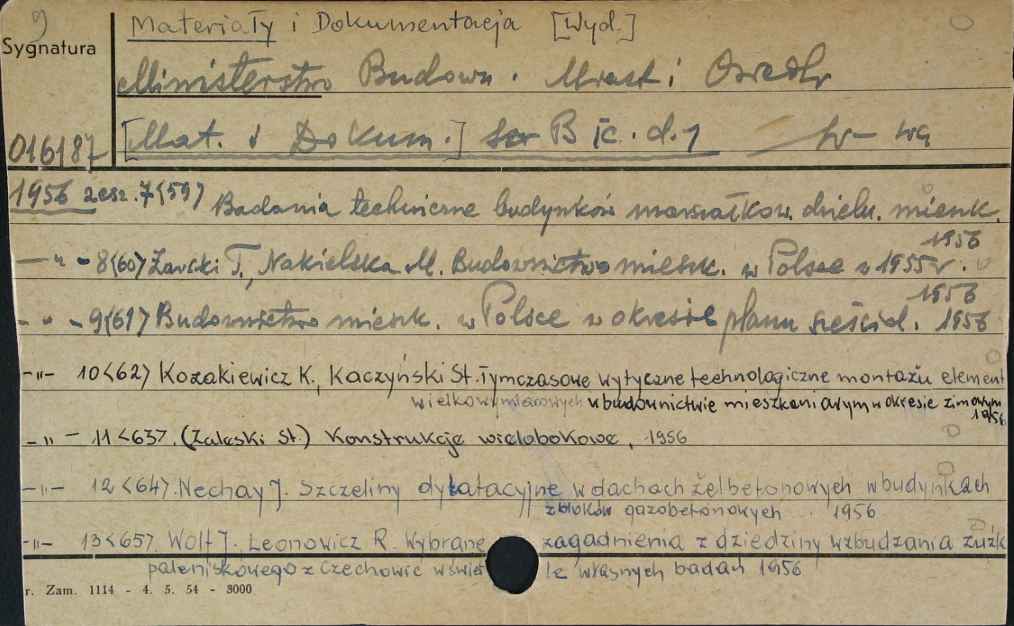 9 Materiały i Dokumentacja [Wyd.]
Sygnatura
Ministerstwo Budown. Miast i Osiedli
016187 [Mat. i Dokum.] Ser B Ic. d. 1
1956 zesz. 7(59) Badania techniczne budynków marszałkow. dzieln. mieszk.
1956
-"- 8(60) Żarski T., Nakielska M. Budownictwo mieszk. w Polsce w 1955 r.
1956
-"- 9(61) Budownictwo mieszk. w Polsce w okresie planu sześciol. 1956
-"- 10<62> Kozakiewicz K., Kaczyński St. Tymczasowe wytyczne technologiczne montażu element
wielkowymiarowych w budownictwie mieszkaniowym w okresie zimowym
1956
-"- 11<63>. (Zaleski St.) Konstrukcje wielobokowe, 1956
-"- 12<64>. Nechay J. Szczeliny dylatacyjne w dachach żelbetonowych w budynkach
z bloków gazobetonowych 1956
-"- 13<65>. Wolf J. Leonowicz R. Wybrane zagadnienia z dziedziny wzbudzania żużl
paleniskowego z Czechowic w świetle własnych badań 1956
r. Zam. 1114 - 4. 5. 54 - 3000